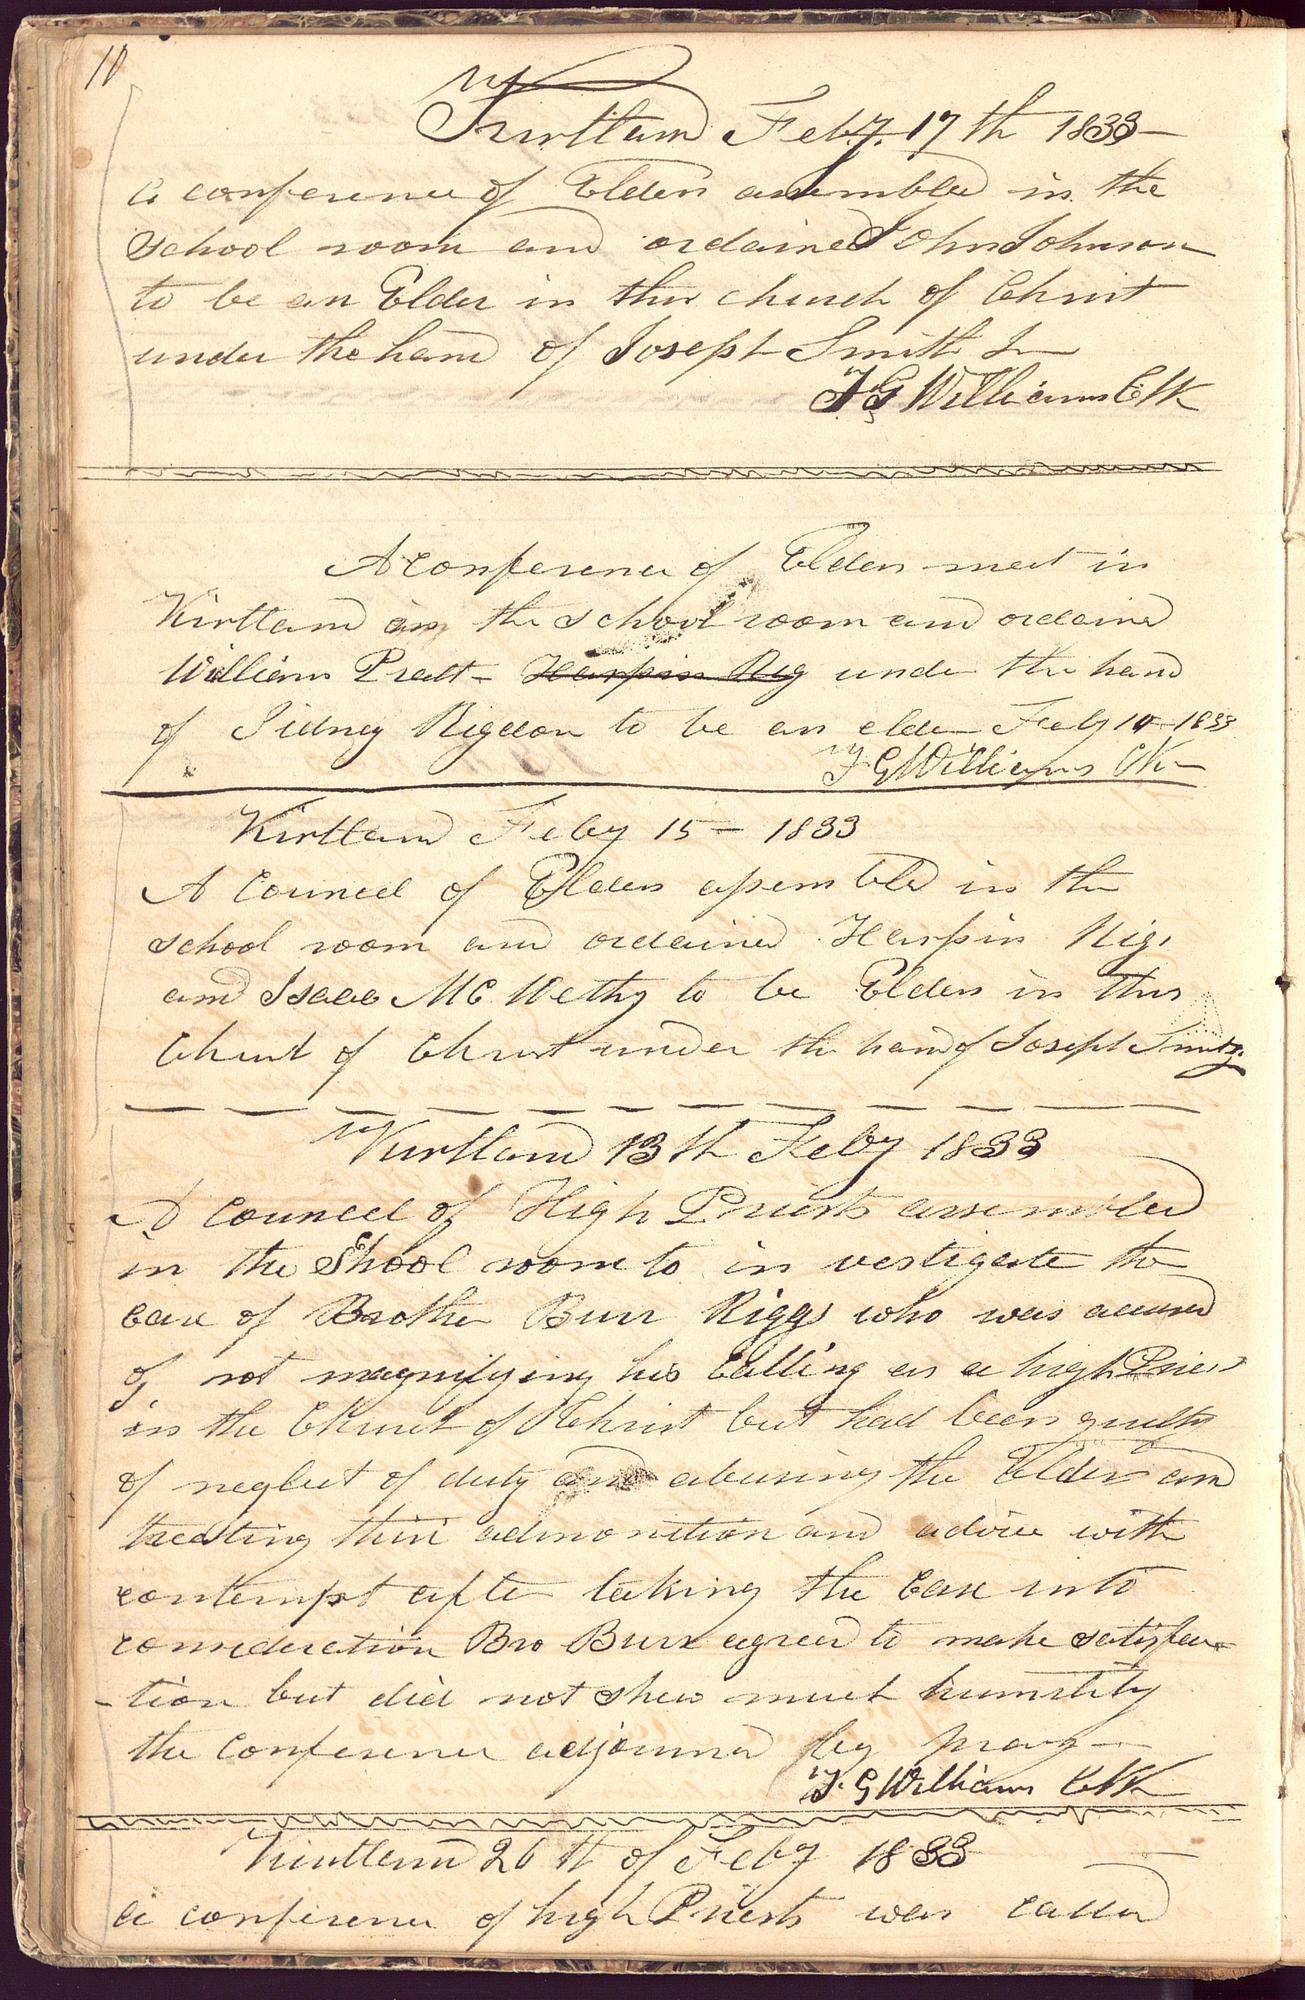 10
Kirtland Feby. 17th 1833—
a conference of Elders assembled in the
school room and ordained John Johnson
to be an Elder in this church of Christ
under the hand of Joseph Smith Jr
F G Williams Clk
A conference of Elders meet in
Kirtland in the school room and ordained
William Pratt - Harpin Rig under the hand
of Sidney Rigdon to be an elder Feby 10 - 1833
F G Williams Clk—
Kirtland Feby 15 — 1833
A Councel of Elders assembled in the
school room and ordained Harpin Rigs
and Isaac MC Wethy to be Elders in this
Church of Christ under the hand of Joseph Smith Jr.
Kirtland 13th Feby 1833
A councel of High Priests assembled
in the School room to in vestigate the
case of Brother Burr Riggs who was accused
of not magnifying his calling as a high Priest
in the Church of Christ but had been guilty
of neglect of duty and abusing the Elders and
treating their admonition and advice with
contempt after taking the case into
consideration Bro Burr agreed to make satisfac-
-tion but did not shew much humility
the conference adjourned by pray—
F. G Williams Clk
Kirtland 26th of Feby 1833
a conference of high Priests was called